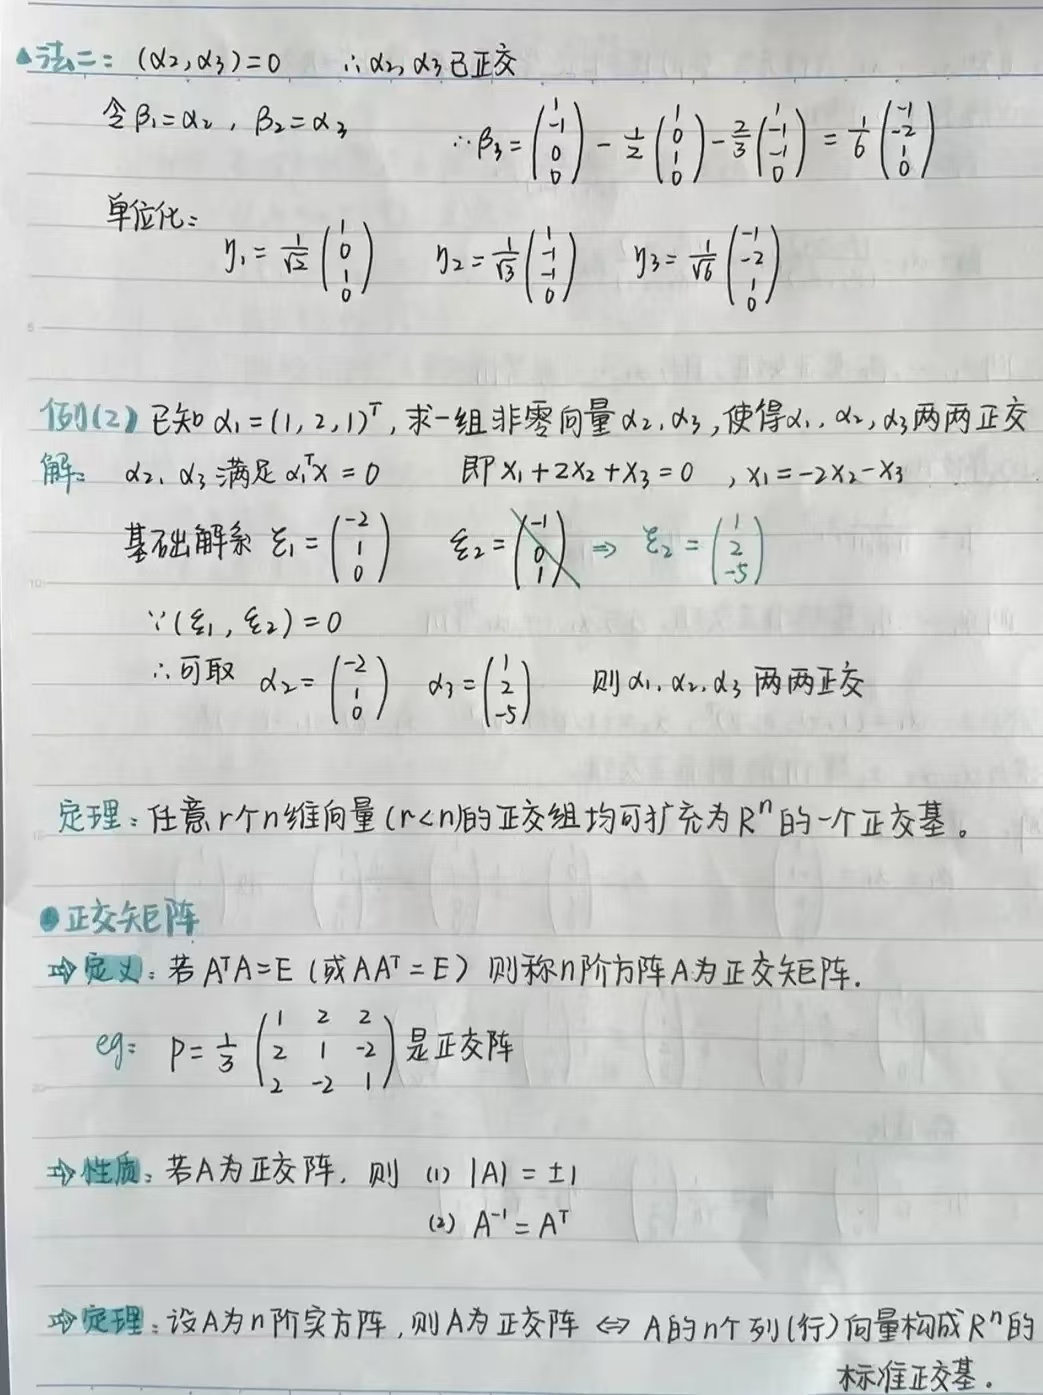 ▲法二: (α₂,α₃)=0 ∴α₂,α₃已正交
令β₁=α₂, β₂=α₃ ∴β₃=(1 -1 0 0) - 1/2 (1 0 1 0) - 2/3 (1 -1 -1 0) = 1/6 (-1 -2 1 0)
单位化:
η₁=1/√2 (1 0 1 0) η₂=1/√3 (1 -1 -1 0) η₃=1/√6 (-1 -2 1 0)
5
例(2) 已知α₁=(1,2,1)ᵀ,求一组非零向量α₂,α₃,使得α₁,α₂,α₃两两正交
解: α₂、α₃满足α₁ᵀx=0 即x₁+2x₂+x₃=0 ,x₁=-2x₂-x₃
基础解系 ξ₁=(-2 1 0) ξ₂=(-1 0 1) ⇒ ξ₂=(1 2 -5)
10
∵(ξ₁,ξ₂)=0
∴可取 α₂=(-2 1 0) α₃=(1 2 -5) 则α₁、α₂、α₃两两正交
定理:任意r个n维向量(r<n)的正交组均可扩充为Rⁿ的一个正交基。
●正交矩阵
⇒定义:若AᵀA=E(或AAᵀ=E)则称n阶方阵A为正交矩阵.
eg: P=1/3 (1 2 2 2 1 -2 2 -2 1) 是正交阵
⇒性质:若A为正交阵, 则 (1) |A|=±1
(2) A⁻¹=Aᵀ
⇒定理:设A为n阶实方阵,则A为正交阵 ⇔ A的n个列(行)向量构成Rⁿ的
标准正交基.